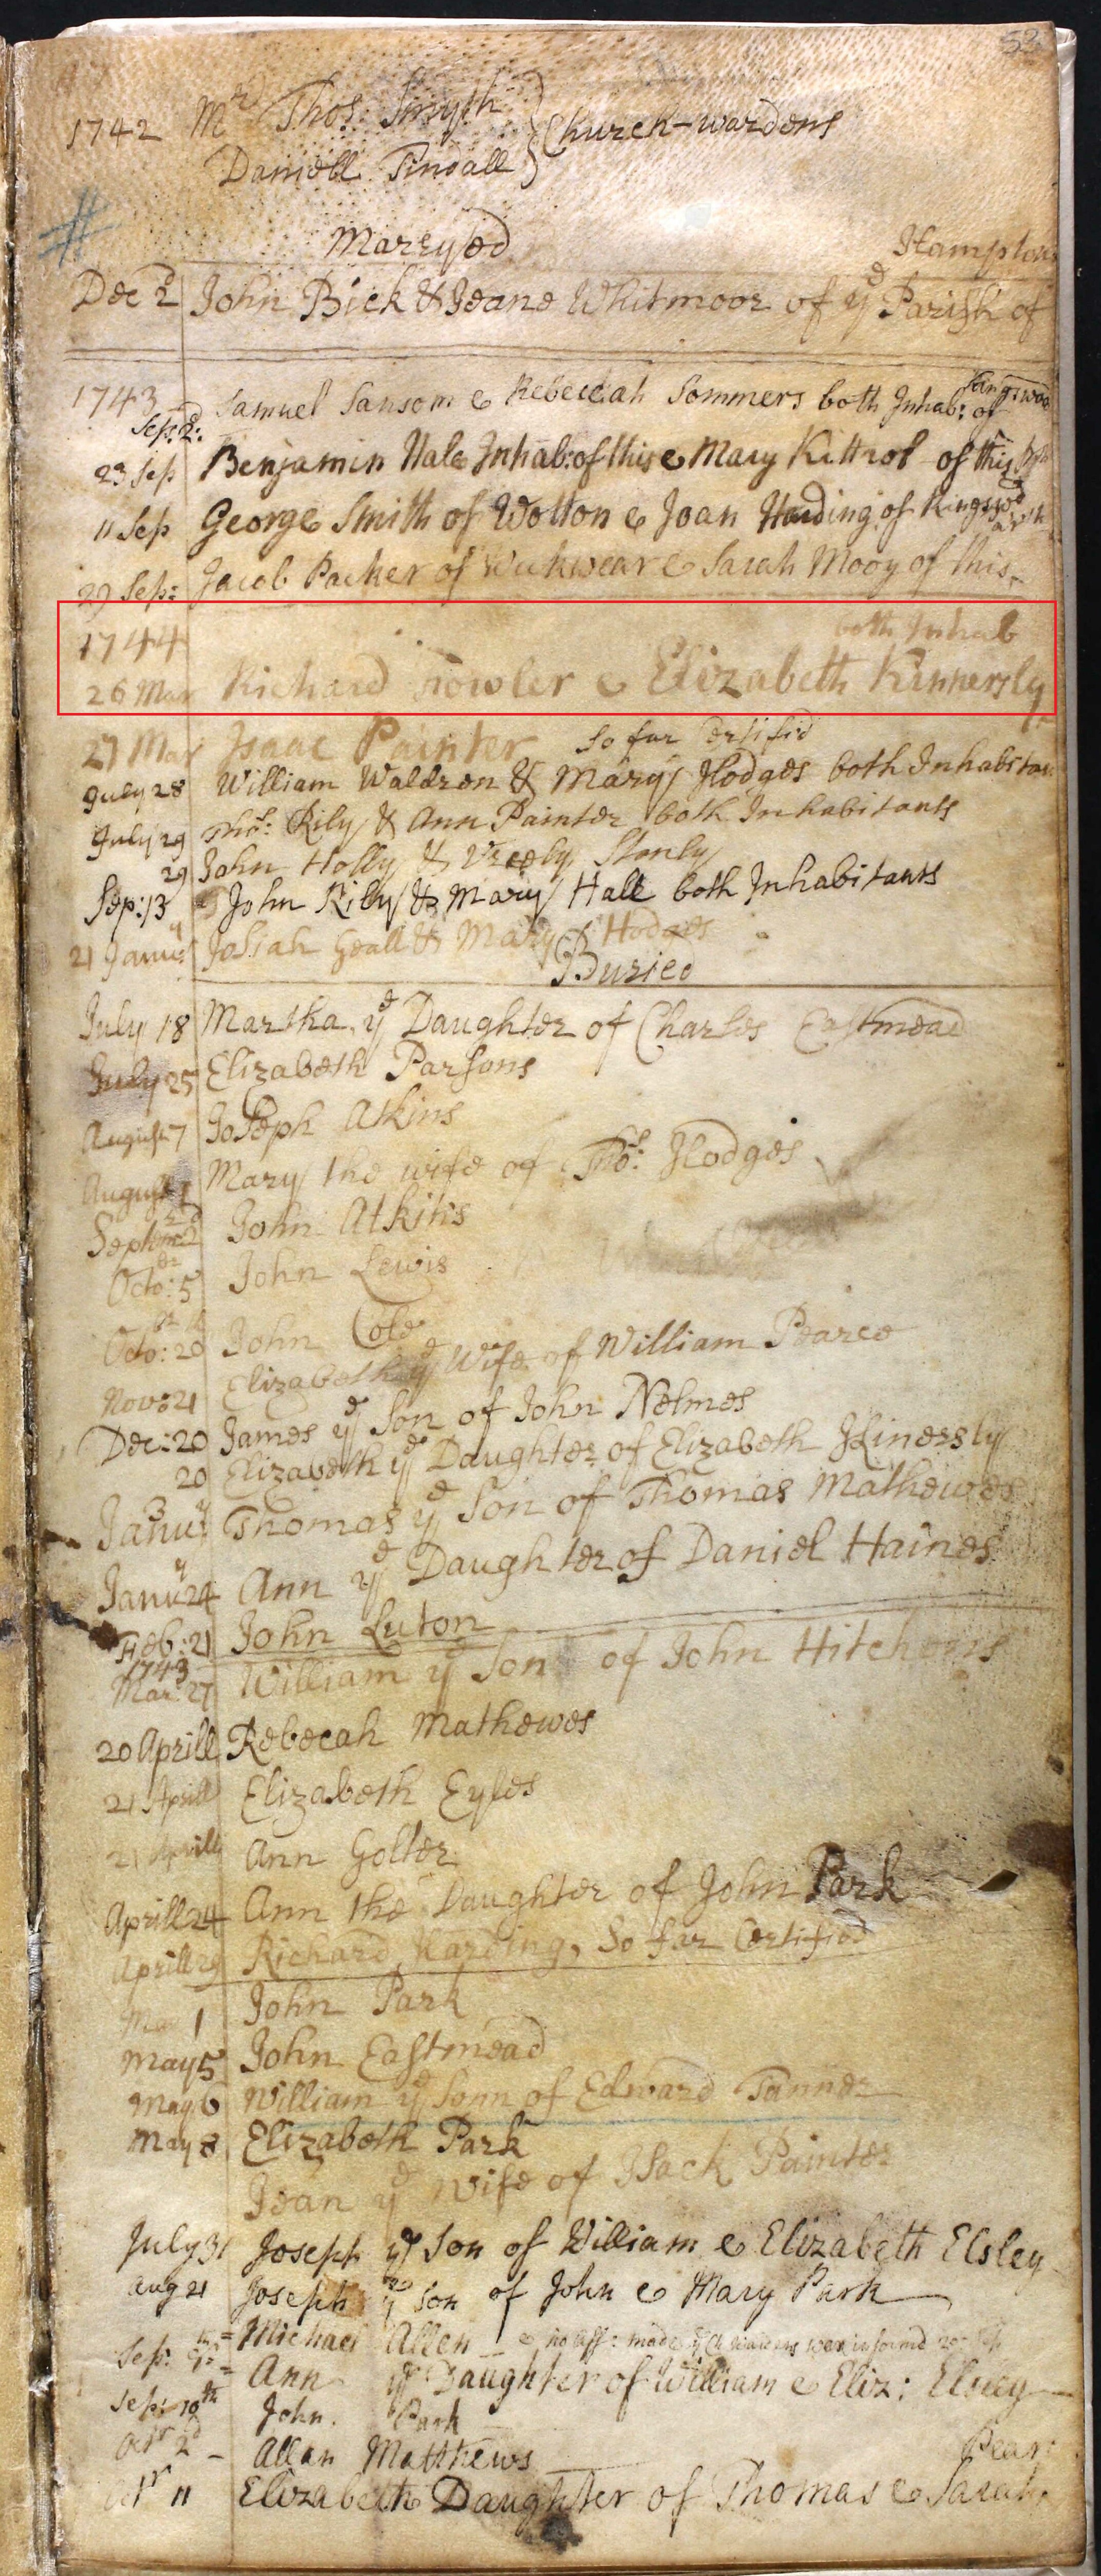 52
1742 Mr Thos Smyth
Church-wardens
Daniell Tindall
Marryed
Hampton
Dec 2 John Bick & Jeane Whitmoor of ye Parish of
1743 Samuel Sansom & Rebeccah Sommers both Inhab: of
Sep: 2:
23 Sep Benjamin Hale Inhab: of this & Mary Kittrol of this
11 Sep George Smith of Wotton & Joan Harding of Kingswd
29 Sep: Jacob Parker of Wickwear & Sarah Mooy of this
1744 both Inhab
26 Mar Richard Fowler & Elizabeth Kinnersly
27 Mar Isaac Painter So far Certified
July 28 William Waldron & Mary Hodges both Inhabitan
July 29 Thos: Rily & Ann Painter both Inhabitants
29 John Holly & Stanly
Sep: 13 John Rily & Mary Hall both Inhabitants
21 Janu Josiah Geall & Mary Hodges
Buried
July 18 Martha ye Daughter of Charles Eastmead
July 25 Elizabeth Parsons
August 7 Joseph Atkins
August Mary the wife of Thos: Hodges
John Atkins
Octo: 5 John Lewis
Octo: 20 John Cole
Nov: 21 Elizabeth ye Wife of William Pearce
Dec: 20 James ye Son of John Nelmes
20 Elizabeth ye Daughter of Elizabeth Kinersly
Janu: 3 Thomas ye Son of Thomas Mathewes
Janu 24 Ann ye Daughter of Daniel Haines
Feb: 21 John Luton
1743
Mar: 27 William ye Son of John Hitchens
20 Aprill Rebecah Mathewes
21 Aprill Elizabeth Eyles
21 Aprill Ann Golter
Aprill 24 Ann the Daughter of John Park
Aprill 29 Richard Harding, So far Certified
May 1 John Park
May 5 John Eastmead
May 6 William ye Sonn of Edward Tanner
May 8 Elizabeth Park
Jean ye wife of Isack Painter
July 31 Joseph ye Son of William & Elizabeth Elsley
Aug 21 Joseph ye Son of John & Mary Park
Sep: Michael Allen no Aff: made
Ann ye Daughter of William & Eliz: Elsley
Sep: 10th John Park
Octr 2d Allan Matthews
Pear
Octr 11 Elizabeth Daughter of Thomas & Sarah